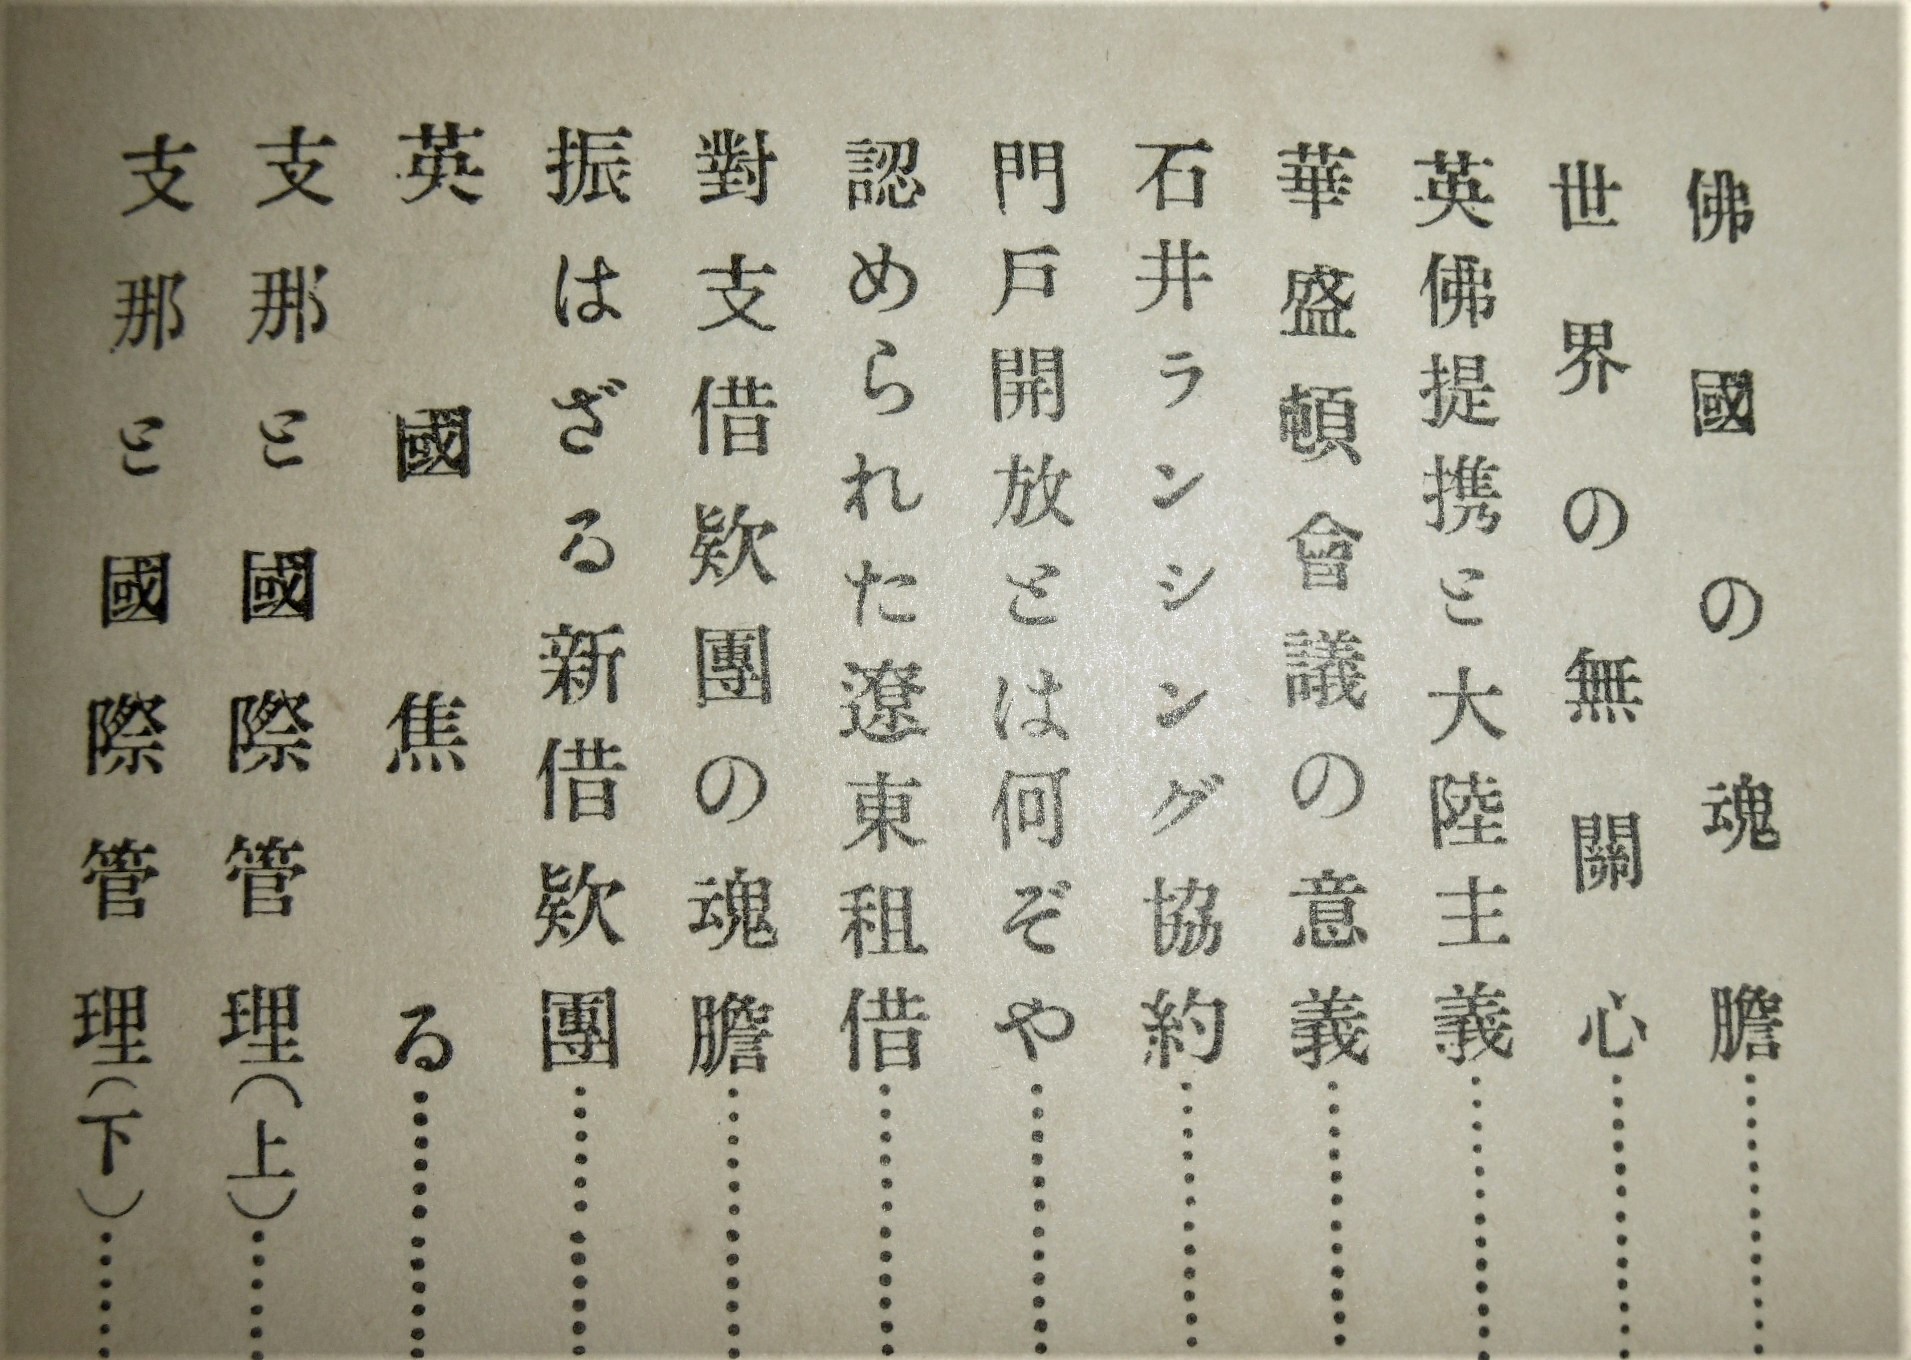 佛國の魂膽…………
世界の無關心…………
英佛提携と大陸主義…………
華盛頓會議の意義…………
石井ランシング協約…………
門戸開放とは何ぞや…………
認められた遼東租借…………
對支借欵團の魂膽…………
振はざる新借欵團…………
英國焦る…………
支那と國際管理(上)……
支那と國際管理(下)……